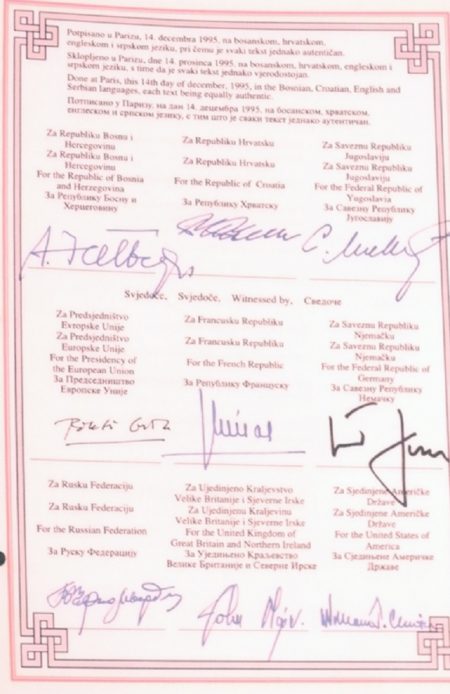 Potpisano u Parizu, 14. decembra 1995, na bosanskom, hrvatskom,
engleskom i srpskom jeziku, pri čemu je svaki tekst jednako autentičan.
Sklopljeno u Parizu, dne 14. prosinca 1995, na bosanskom, hrvatskom, engleskom i
srpskom jeziku, s time da je svaki tekst jednako vjerodostojan.
Done at Paris, this 14th day of december, 1995, in the Bosnian, Croatian, English and
Serbian languages, each text being equally authentic.
Потписано у Паризу, на дан 14. децембра 1995, на босанском, хрватском,
енглеском и српском језику, с тим што је сваки текст једнако аутентичан.
Za Republiku Bosnu i
Hercegovinu
Za Republiku Bosnu i
Hercegovinu
For the Republic of Bosnia
and Herzegovina
За Републику Босну и
Херцеговину
Za Republiku Hrvatsku
Za Republiku Hrvatsku
For the Republic of Croatia
За Републику Хрватску
Za Saveznu Republiku
Jugoslaviju
Za Saveznu Republiku
Jugoslaviju
For the Federal Republic of
Yugoslavia
За Савезну Републику
Југославију
Svjedoče, Svjedoče, Witnessed by, Сведоче
Za Predsjedništvo
Evropske Unije
Za Predsjedništvo
Europske Unije
For the Presidency of
the European Union
За Председништво
Европске Уније
Za Francusku Republiku
Za Francusku Republiku
For the French Republic
За Републику Француску
Za Saveznu Republiku
Njemačku
Za Saveznu Republiku
Njemačku
For the Federal Republic of
Germany
За Савезну Републику
Немачку
Za Rusku Federaciju
Za Rusku Federaciju
For the Russian Federation
За Руску Федерацију
Za Ujedinjeno Kraljevstvo
Velike Britanije i Sjeverne Irske
Za Ujedinjenu Kraljevinu
Velike Britanije i Sjeverne Irske
For the United Kingdom of
Great Britain and Northern Ireland
За Уједињено Краљевство
Велике Британије и Северне Ирске
Za Sjedinjene Američke
Države
Za Sjedinjene Američke
Države
For the United States of
America
За Сједињене Америчке
Државе
John